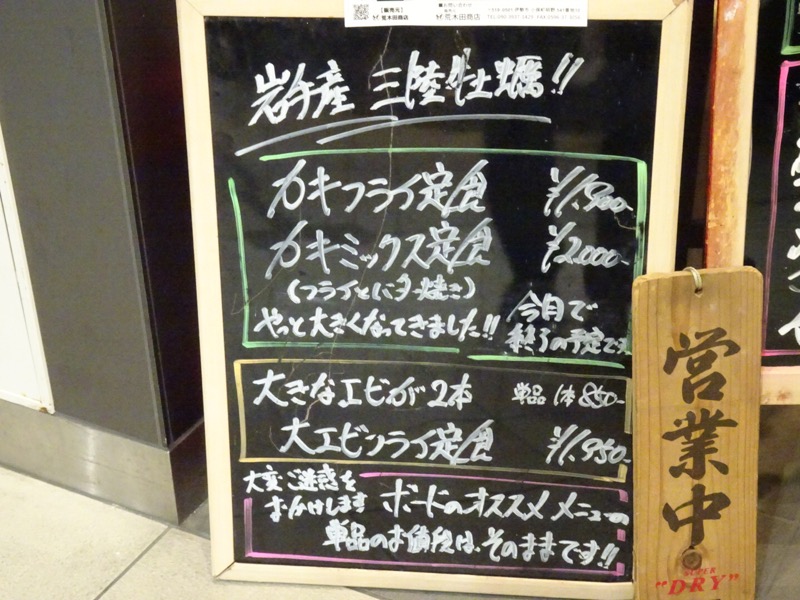 【販売元】
荒木田商店
岩手産 三陸牡蠣!!
カキフライ定食 ¥1,900-
カキミックス定食 ¥2,000-
(フライとバター焼き)
やっと大きくなってきました!!
今月で
終了の予定です
大きなエビが2本 単品 1本 850-
大エビフライ定食 ¥1,950-
大変ご迷惑を
おかけします
ボードのオススメメニューの
単品のお値段は、そのままです!!
営業中
SUPER
"DRY"